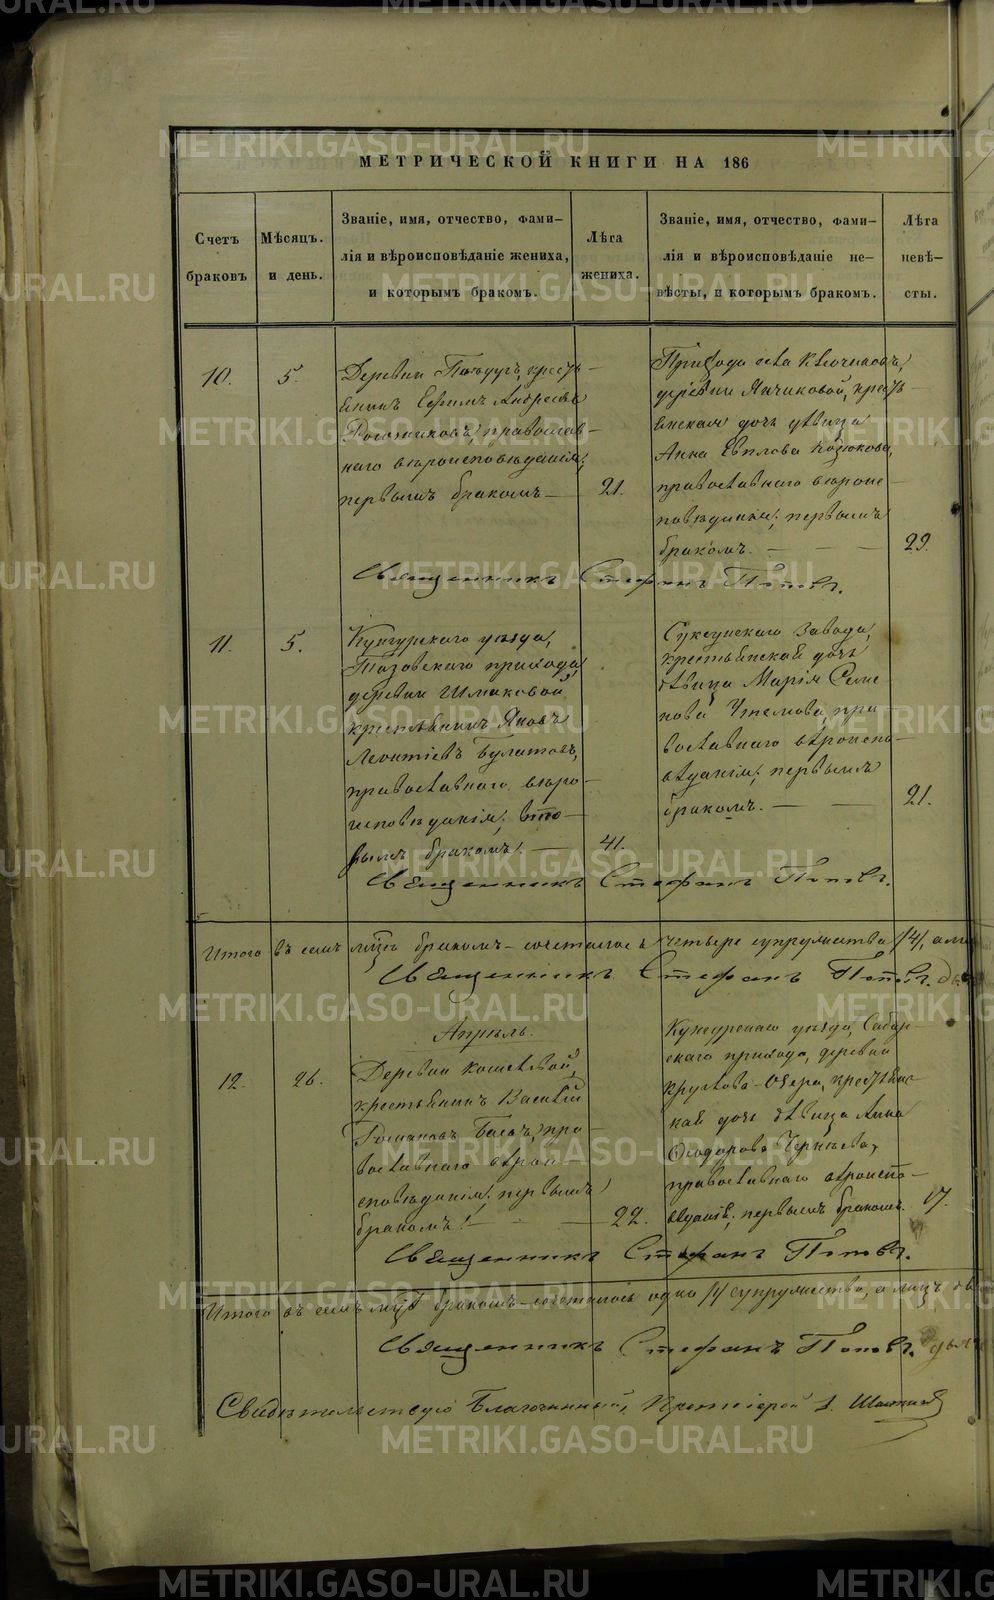 МЕТРИЧЕСКОЙ КНИГИ НА 186
Счетъ браковъ
Мѣсяцъ. и день.
Званіе, имя, отчество, фами-
лія и вѣроисповѣданіе жениха,
и которымъ бракомъ.
Лѣта
жениха.
Званіе, имя, отчество, фами-
лія и вѣроисповѣданіе не-
вѣсты, и которымъ бракомъ.
Лѣта
невѣ-
сты.
10.
5.
Деревни кресть-
янинъ Ефимъ Андреевъ
православ-
наго вѣроисповѣданія,
первымъ бракомъ—
21.
Прихода села Ключиковъ,
деревни Янчиковой, кресть-
янская дочь дѣвица
Анна Евплова Козюкова,
православнаго вѣроис-
повѣданія, первымъ
бракомъ. — — —
29.
Священникъ Стефанъ Поповъ.
11.
5.
Кунгурскаго уѣзда,
Тазовскаго прихода,
деревни Шмаковой
крестьянинъ Яковъ
Леонтіевъ Булатовъ,
православнаго вѣро-
исповѣданія, вто-
рымъ бракомъ. —
41.
Суксунскаго завода,
крестьянская дочь
дѣвица Марія Семе-
нова пра-
вославнаго вѣроиспо-
вѣданія, первымъ
бракомъ. — —
21.
Священникъ Стефанъ Поповъ.
Итого въ семъ мцѣ бракомъ—сочеталось четыре супружества /4/, а лицъ
Священникъ Стефанъ Поповъ.
Апрѣль.
12.
26.
Деревни Кошелевой,
крестьянинъ Василій
Романовъ пра-
вославнаго вѣрои-
сповѣданія, первымъ
бракомъ. — — —
22.
Кунгурскаго уѣзда, Сабар-
скаго прихода, деревни
Круглова-Озера, крестьянс-
кая дочь дѣвица Анна
Ѳеодорова
православнаго вѣроиспо-
вѣданія, первымъ бракомъ.
17.
Священникъ Стефанъ Поповъ.
Итого въ семъ мцѣ бракомъ—сочеталось одно /1/ супружество, а лицъ два
Священникъ Стефанъ Поповъ.
Свидѣтельствую Благочинный, Протоіерей
METRIKI.GASO-URAL.RU